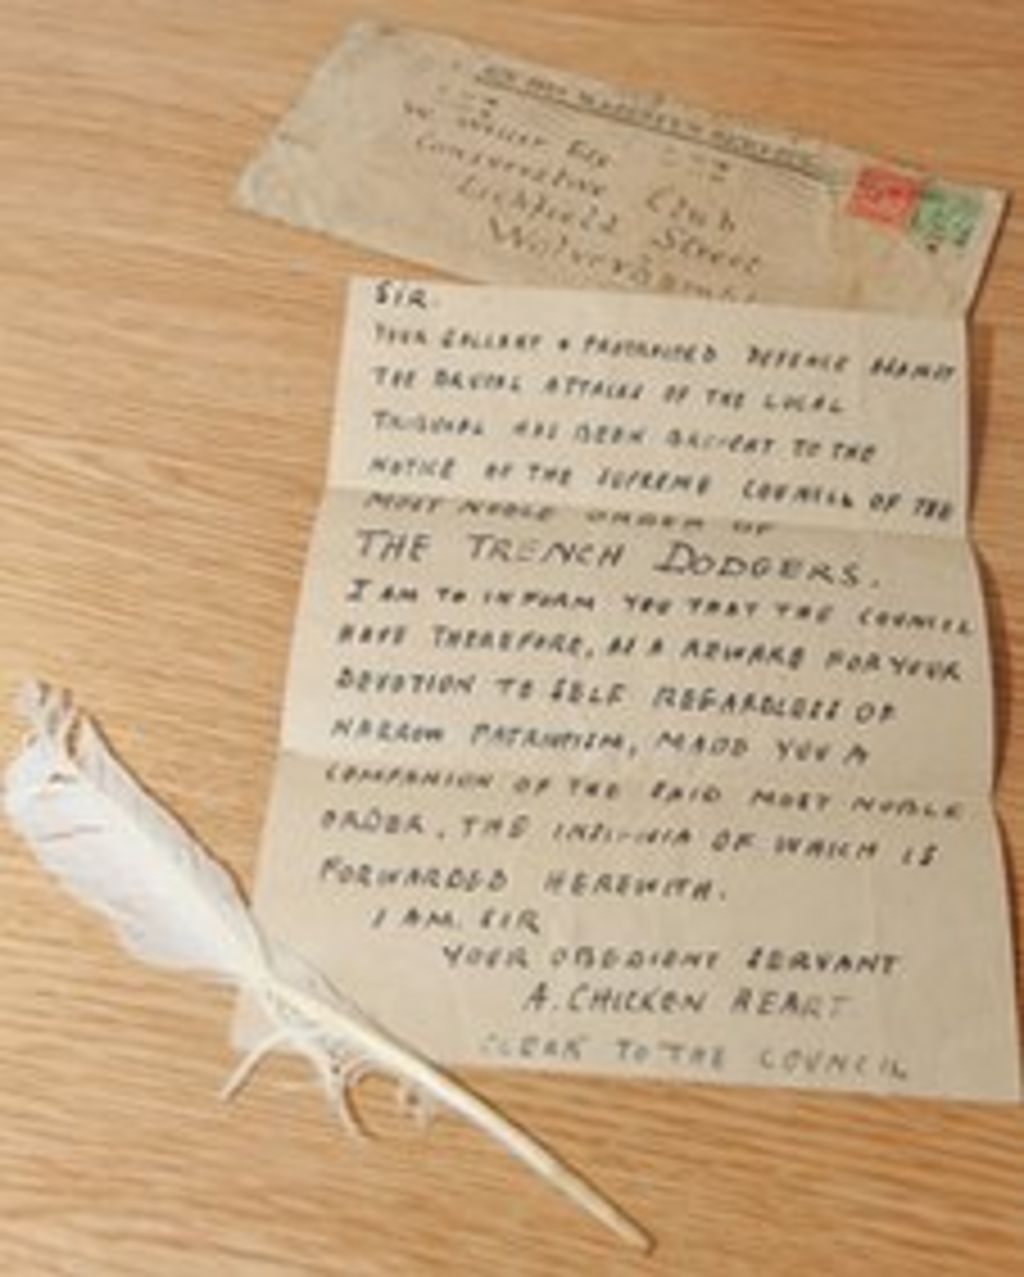 ON HIS MAJESTY'S SERVICE
W. Esq
Conservative Club
Lichfield Street
SIR.
YOUR GALLANT & PROTRACTED DEFENCE AGAINST
THE BRUTAL ATTACKS OF THE LOCAL
TRIBUNAL HAS BEEN BROUGHT TO THE
NOTICE OF THE SUPREME COUNCIL OF THE
MOST NOBLE ORDER OF
THE TRENCH DODGERS.
I AM TO INFORM YOU THAT THE COUNCIL
HAVE THEREFORE, AS A REWARD FOR YOUR
DEVOTION TO SELF REGARDLESS OF
NARROW PATRIOTISM, MADE YOU A
COMPANION OF THE SAID MOST NOBLE
ORDER, THE INSIGNIA OF WHICH IS
FORWARDED HEREWITH.
I AM, SIR
YOUR OBEDIENT SERVANT
A. CHICKEN HEART
CLERK TO THE COUNCIL